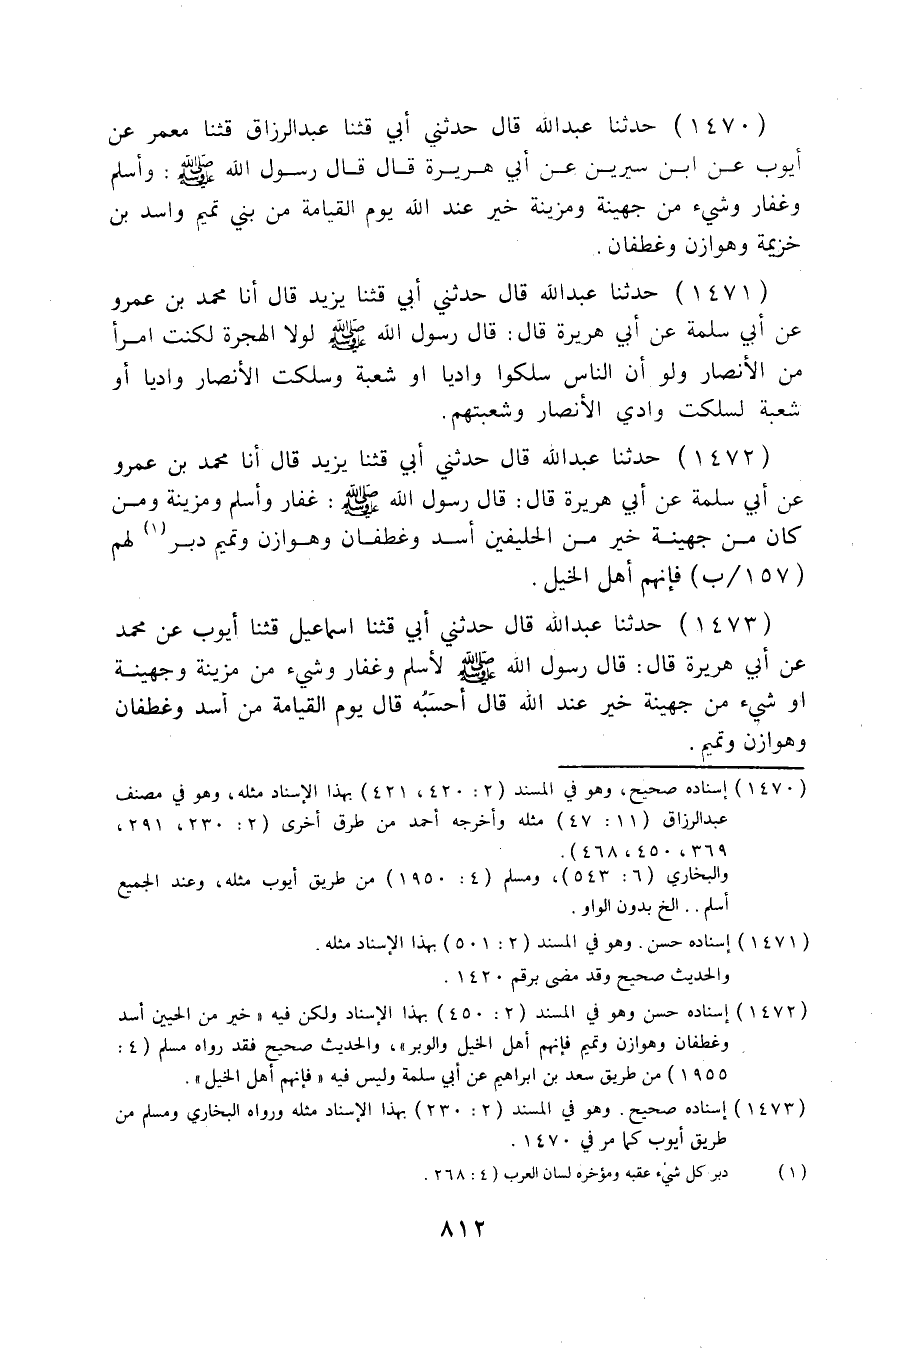 (١٤٧٠) حدثنا عبدالله قال حدثني أبي قثنا عبدالرزاق قثنا معمر عن
أيوب عن ابن سيرين عن أبي هريرة قال قال رسول الله ﷺ : وأسلم
وغفار وشيء من جهينة ومزينة خير عند الله يوم القيامة من بني تميم واسد بن
خزيمة وهوازن وغطفان .
(١٤٧١) حدثنا عبدالله قال حدثني أبي قثنا يزيد قال أنا محمد بن عمرو
عن أبي سلمة عن أبي هريرة قال : قال رسول الله ﷺ لولا الهجرة لكنت امرأ
من الأنصار ولو أن الناس سلكوا واديا او شعبة وسلكت الأنصار واديا أو
شعبة لسلكت وادي الأنصار وشعبتهم .
(١٤٧٢) حدثنا عبدالله قال حدثني أبي قثنا يزيد قال أنا محمد بن عمرو
عن أبي سلمة عن أبي هريرة قال : قال رسول الله ﷺ : غفار وأسلم ومزينة ومن
كان من جهينة خير من الحليفين أسد وغطفان وهوازن وتميم دبر(١) لهم
(١٥٧/ب) فإنهم أهل الخيل .
(١٤٧٣) حدثنا عبدالله قال حدثني أبي قثنا اسماعيل قثنا أيوب عن محمد
عن أبي هريرة قال : قال رسول الله ﷺ لأسلم وغفار وشيء من مزينة وجهينة
او شيء من جهينة خير عند الله قال أحسَبُه قال يوم القيامة من أسد وغطفان
وهوازن وتميم .
(١٤٧٠) إسناده صحيح ، وهو في المسند (٢ : ٤٢٠ ، ٤٢١) بهذا الإسناد مثله ، وهو في مصنف
عبدالرزاق (١١ : ٤٧) مثله وأخرجه أحمد من طرق أخرى (٢ : ٢٣٠ ، ٢٩١ ،
٣٦٩ ، ٤٥٠ ، ٤٦٨) .
والبخاري (٦ : ٥٤٣) ، ومسلم (٤ : ١٩٥٠) من طريق أيوب مثله ، وعند الجميع
أسلم . . الخ بدون الواو .
(١٤٧١) إسناده حسن . وهو في المسند (٢ : ٥٠١) بهذا الإسناد مثله .
والحديث صحيح وقد مضى برقم ١٤٢٠ .
(١٤٧٢) إسناده حسن وهو في المسند (٢ : ٤٥٠) بهذا الإسناد ولكن فيه « خير من الحيين أسد
وغطفان وهوازن وتميم فإنهم أهل الخيل والوبر » ، والحديث صحيح فقد رواه مسلم (٤ :
١٩٥٥) من طريق سعد بن ابراهيم عن أبي سلمة وليس فيه « فإنهم أهل الخيل » .
(١٤٧٣) إسناده صحيح . وهو في المسند (٢ : ٢٣٠) بهذا الإسناد مثله ورواه البخاري ومسلم من
طريق أيوب كما مر في ١٤٧٠ .
(١) دبر كل شيء عقبه ومؤخره لسان العرب (٤ : ٢٦٨ .
٨١٢